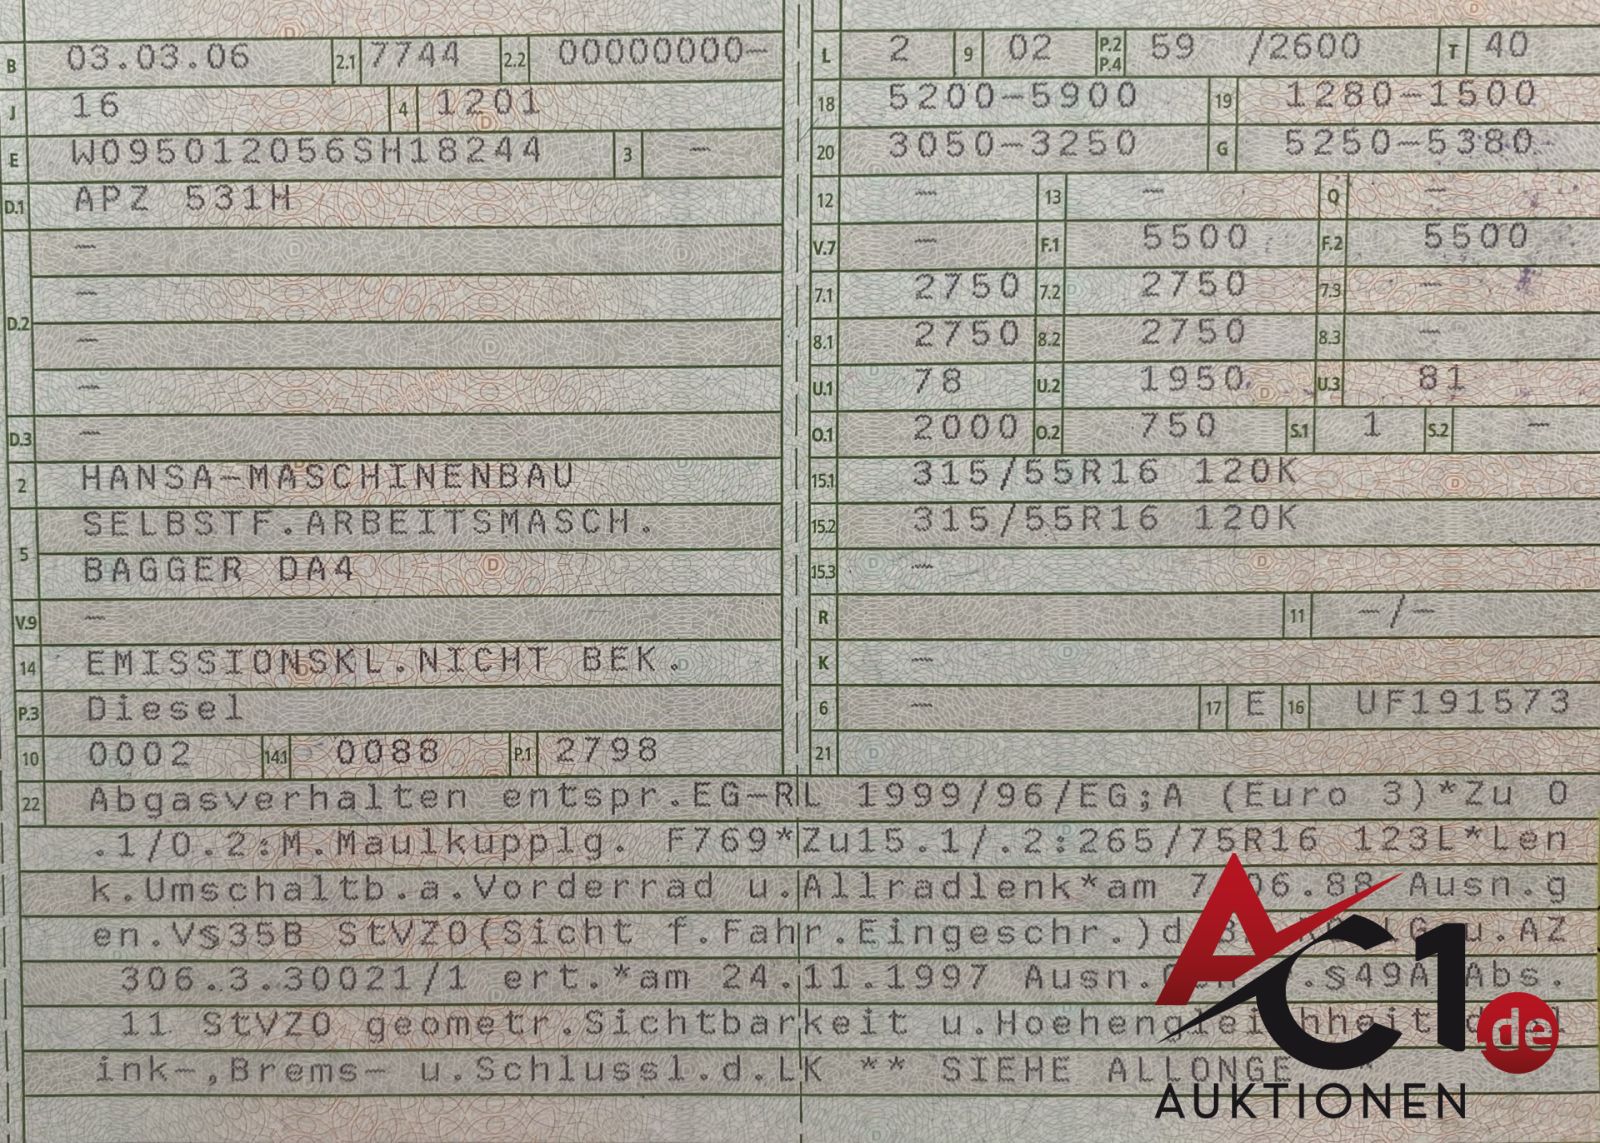 B 03.03.06 2.1 7744 2.2 00000000—
J 16 4 1201
E W095012056SH18244 3 —
D.1 APZ 531H
—
—
D.2
—
—
D.3 —
2 HANSA-MASCHINENBAU
SELBSTF.ARBEITSMASCH.
5
BAGGER DA4
V.9 —
14 EMISSIONSKL.NICHT BEK.
P.3 Diesel
10 0002 14.1 0088 P.1 2798
L 2 9 02 P.2 P.4 59 /2600 T 40
18 5200—5900 19 1280—1500
20 3050—3250 G 5250—5380
12 — 13 — Q —
V.7 — F.1 5500 F.2 5500
7.1 2750 7.2 2750 7.3 —
8.1 2750 8.2 2750 8.3 —
U.1 78 U.2 1950 U.3 81
O.1 2000 O.2 750 S.1 1 S.2 —
15.1 315/55R16 120K
15.2 315/55R16 120K
15.3 —
R 11 —/—
K —
6 — 17 E 16 UF191573
21
22 Abgasverhalten entspr.EG-RL 1999/96/EG;A (Euro 3)*Zu O
.1/O.2:M.Maulkupplg. F769*Zu15.1/.2:265/75R16 123L*Len
k.Umschaltb.a.Vorderrad u.Allradlenk*am 7 06.88 Ausn.g
en.V§35B StVZO(Sicht f.Fahr.Eingeschr.)d u.AZ
306.3.30021/1 ert.*am 24.11.1997 Ausn. .§49A Abs.
11 StVZO geometr.Sichtbarkeit u.Hoehengleichheit
ink-,Brems- u.Schlussl.d.LK ** SIEHE ALLONGE
AC1.de
AUKTIONEN